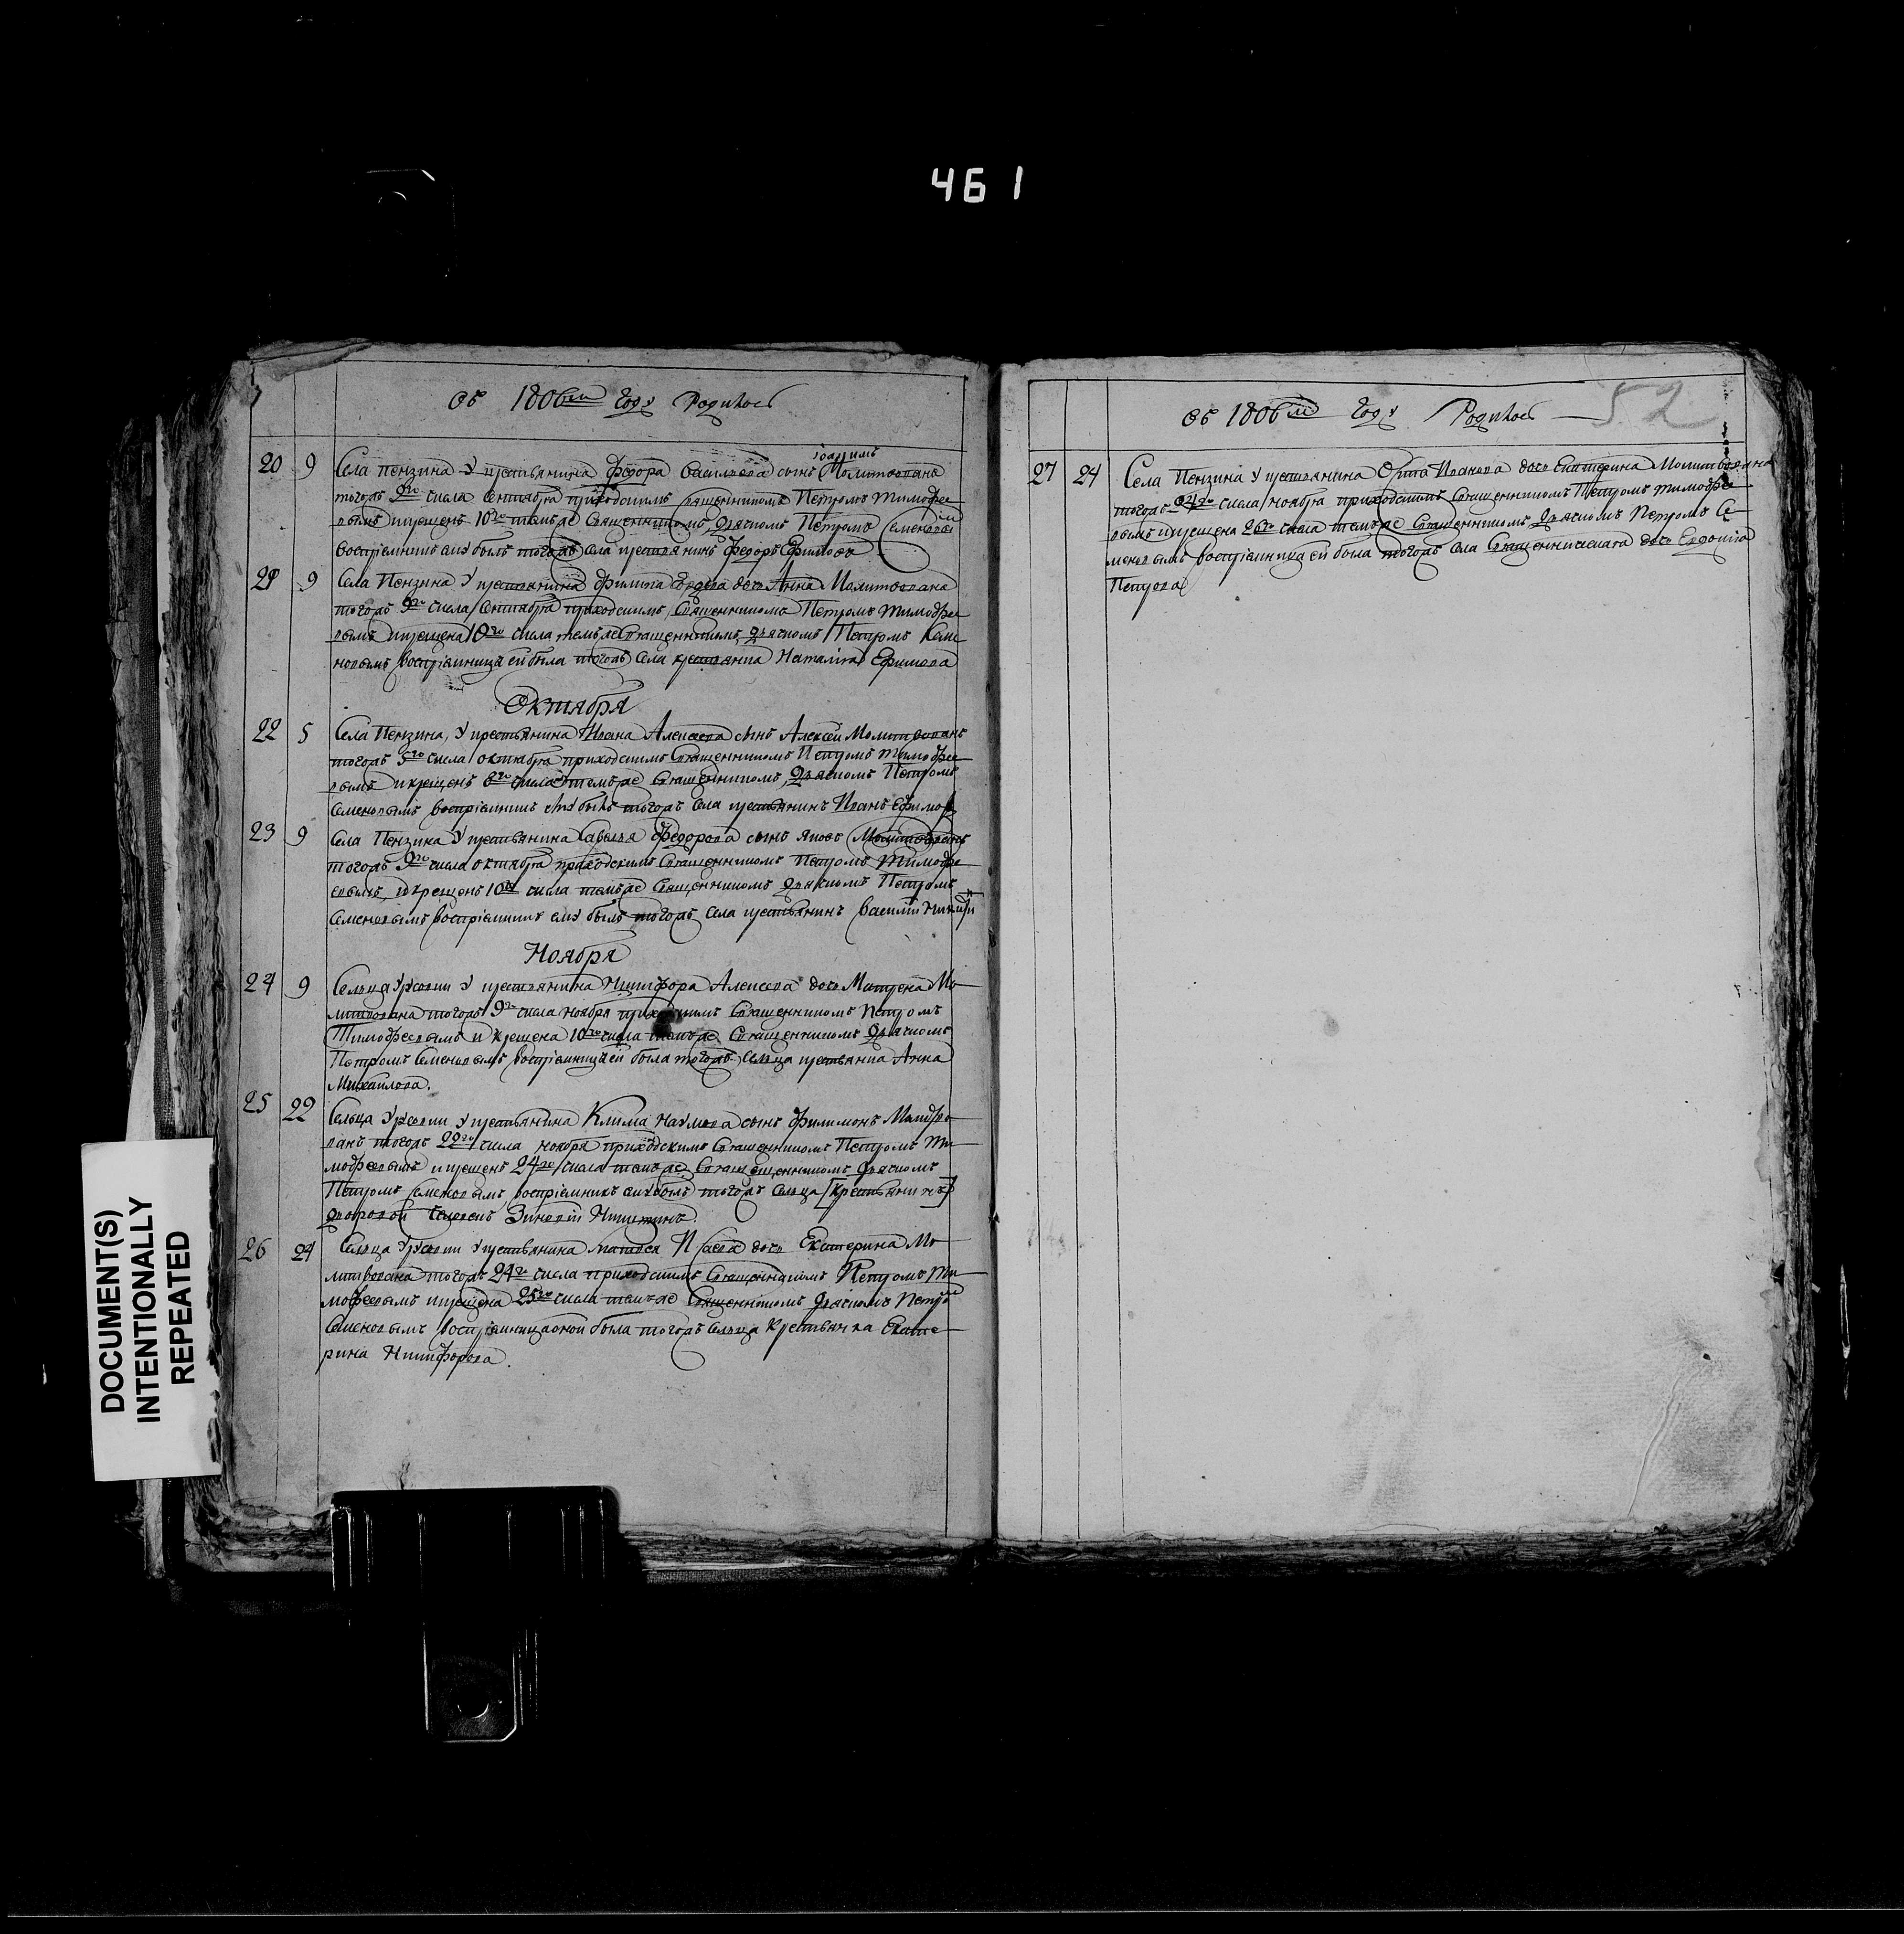 461
Въ 1806м году Родилось
20 9 Села Пензина У крестьянина Федора Васильева сынъ Иоакимъ Молитвованъ
тогожъ 9го числа Сентября приходскимъ Священникомъ Петромъ Тимофее
вымъ крещенъ 10го темъже Священникомъ, дьячкомъ Петромъ Семеновым
восприемникъ ему былъ тогожъ села крестьянинъ Федоръ Ефимовъ
21 9 Села Пензина У крестьянина Филипа дочь Анна Молитвована
тогожъ 9го числа Сентября приходскимъ Священникомъ Петромъ Тимофее
вымъ крещена 10го числа темъже Священникомъ, дьячкомъ Петромъ Семе
новымъ восприемница ей была тогожъ Села крестьянка Наталия Ефимова
Октября
22 5 Села Пензина, У крестьянина Ивана Алексеева сынъ Алексей Молитвованъ
тогожъ 5го числа октября приходскимъ Священникомъ Петромъ Тимофее
вымъ и крещенъ 6го числа темъже Священникомъ, дьячкомъ Петромъ
Семеновымъ восприемникъ ему былъ тогожъ Села крестьянинъ Иванъ Ефимов
23 9 Села Пензина У крестьянина Савелья Федорова сынъ Яковъ Молитвованъ
тогожъ 9го числа октября приходскимъ Священникомъ Петромъ Тимофе
евымъ, и крещенъ 10го числа темъже Священникомъ дьячкомъ Петромъ
Семеновымъ восприемникъ ему былъ тогожъ Села крестьянинъ Василий
Ноября
24 9 Сельца У крестьянина Никифора Алексеева дочь Матрена Мо
литвована тогожъ 9го числа ноября приходскимъ Священникомъ Петромъ
Тимофеевымъ и крещена 10го числа темъже Священникомъ дьячкомъ
Петромъ Семеновымъ восприемница ей была тогожъ Сельца крестьянка Анна
Михайлова.
25 22 Сельца У крестьянина Клима Наумова сынъ Филимонъ
ванъ тогожъ 22го числа ноября приходскимъ Священникомъ Петромъ Ти
мофеевымъ и крещенъ 24го числа темъже Священникомъ дьячкомъ
Петромъ Семеновымъ, восприемникъ ему былъ тогожъ Сельца [крестьянинъ]
дворовой человекъ Зиновий Никитинъ.
26 24 Сельца У крестьянина Матвея дочь Екатерина Мо
литвована тогожъ 24го числа приходскимъ Священникомъ Петромъ Ти
мофеевымъ крещена 25го числа темъже Священникомъ дьячкомъ Петро
Семеновымъ восприемница оной была тогожъ Сельца Крестьянка Екате
рина Никифорова.
Въ 1806м году Родилось 52
27 24 Села Пензина У крестьянина Иванова дочь Екатерина Молитвована
тогожъ 24го числа ноября приходскимъ Священникомъ Петромъ Тимофее
вымъ крещена 26го числа темъже Священникомъ дьячкомъ Петромъ Се
меновымъ восприемница ей была тогожъ села Священническая дочь
Петрова
DOCUMENT(S)
INTENTIONALLY
REPEATED